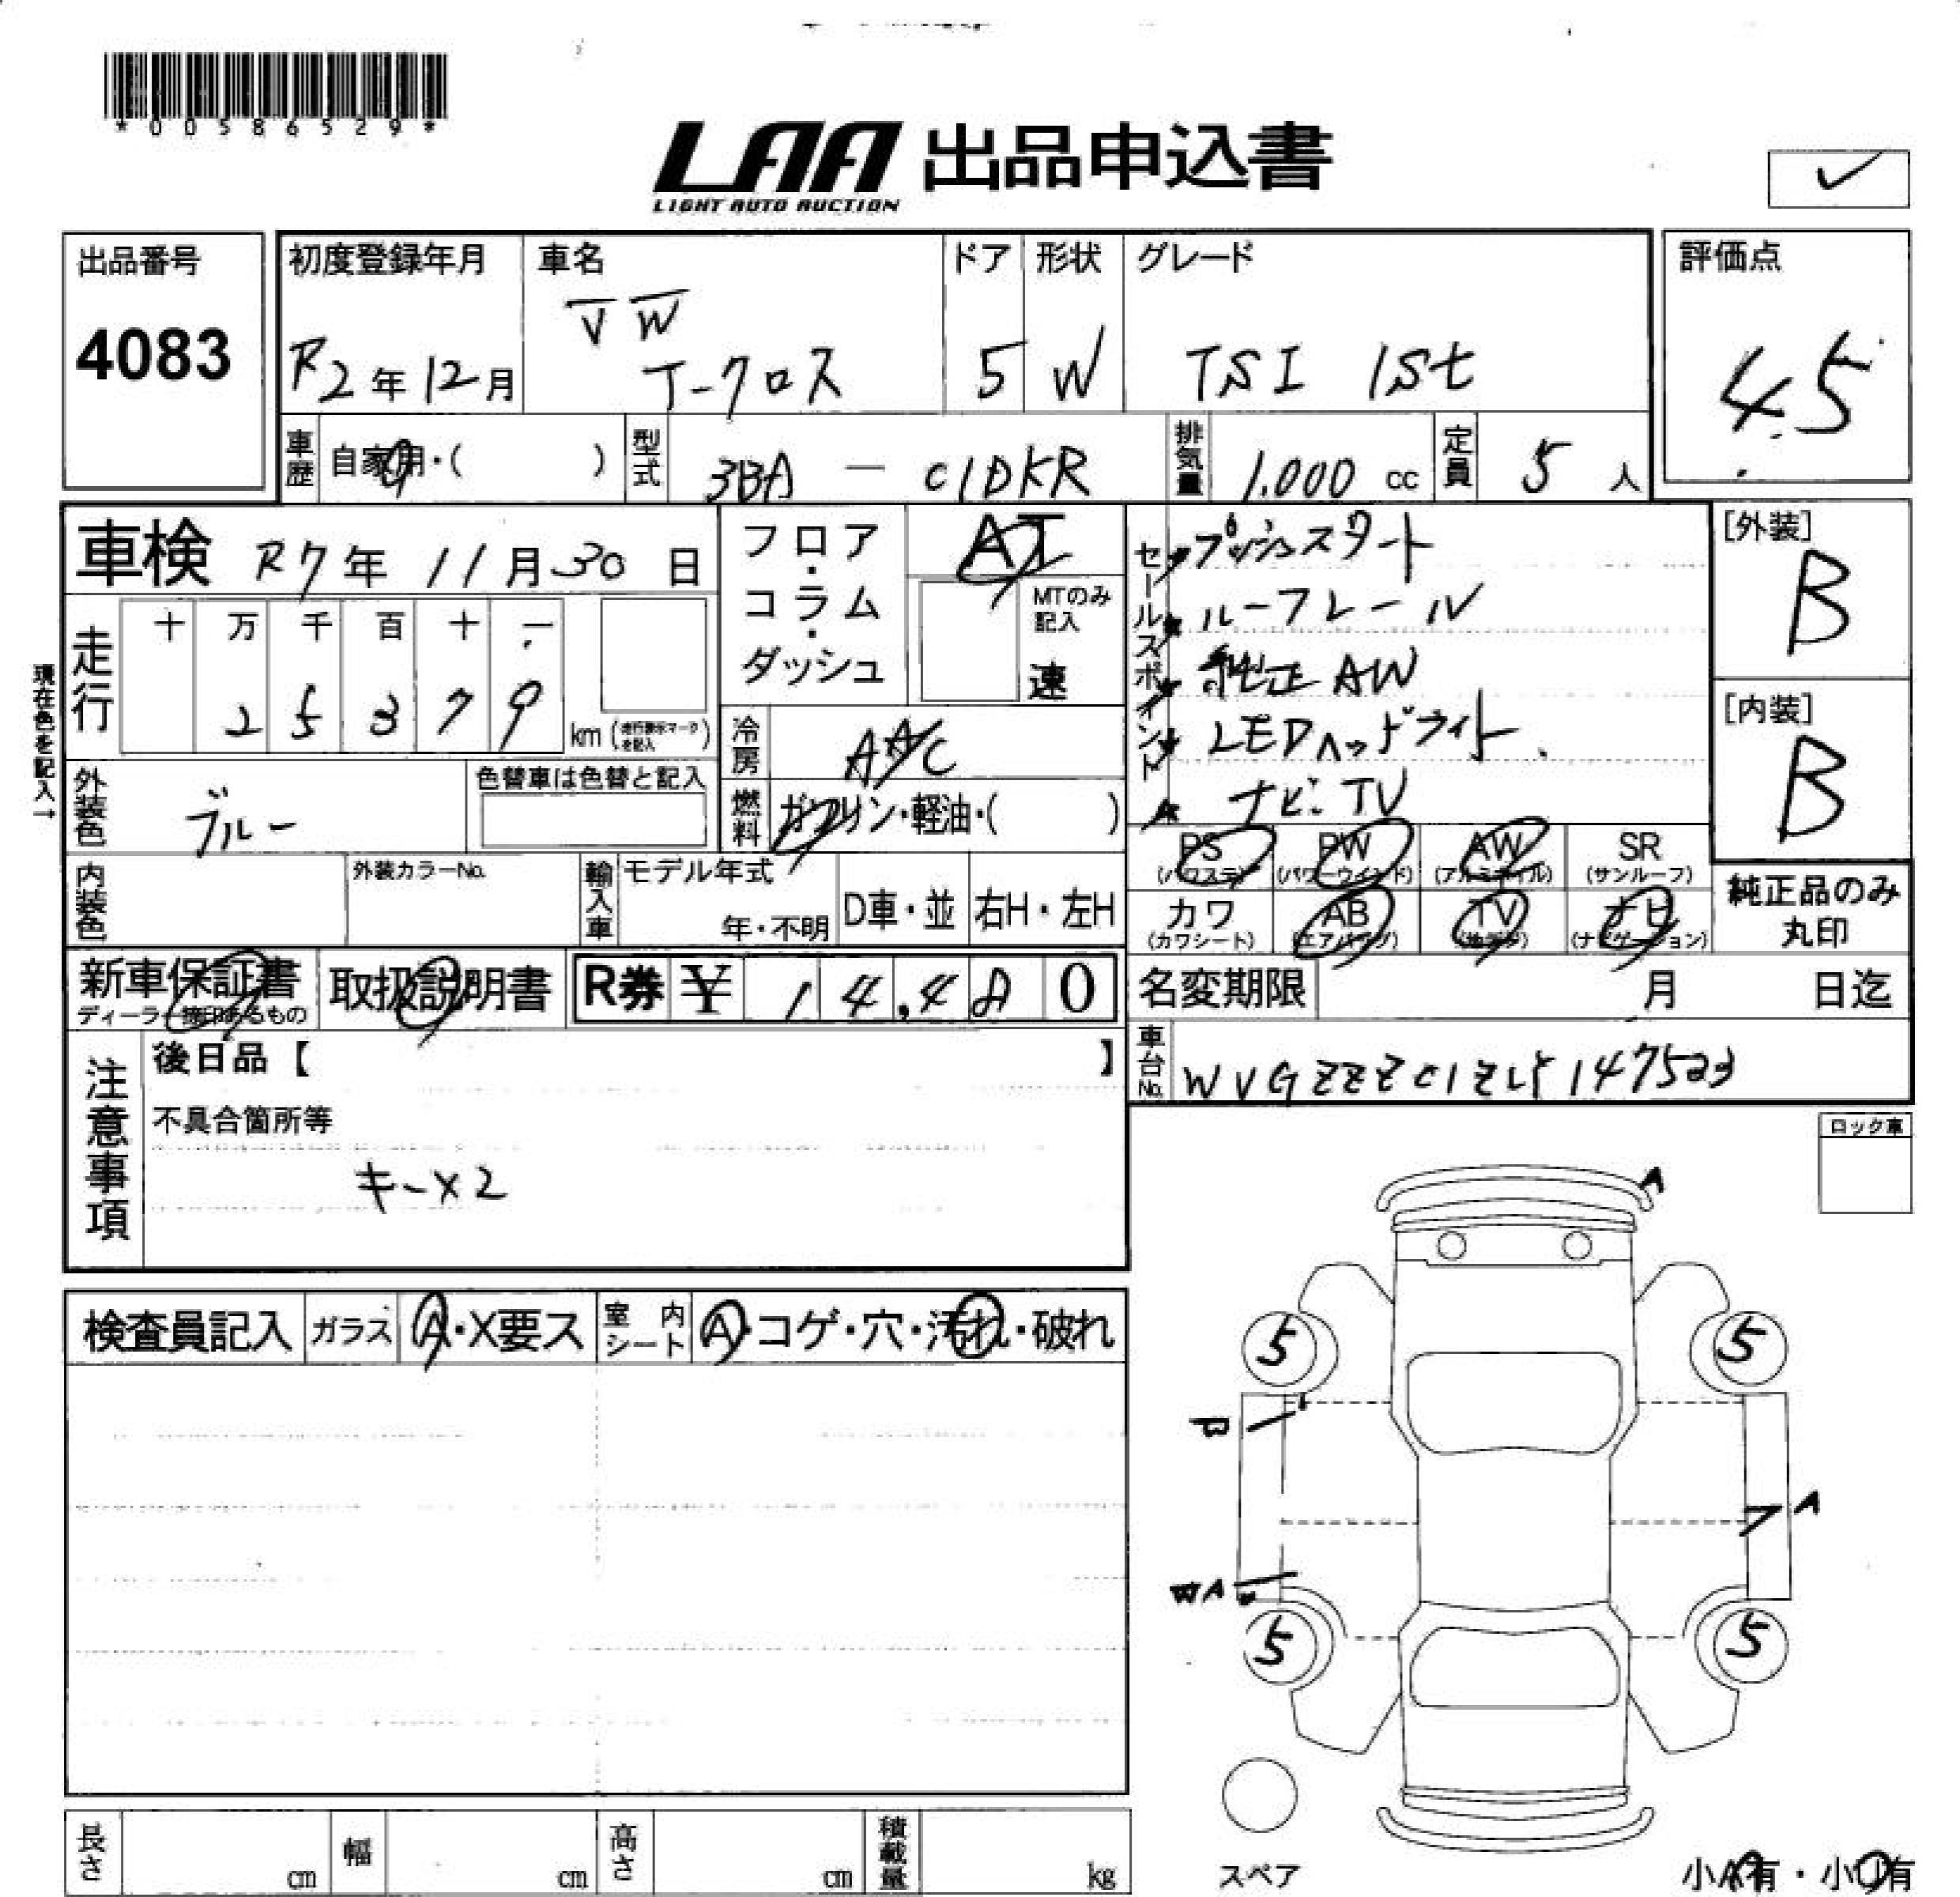 *00586529*
LAA 出品申込書
LIGHT AUTO AUCTION
✓
出品番号
4083
初度登録年月
R2年12月
車名
VW
T-クロス
ドア
5
形状
W
グレード
TSI 1St
評価点
4.5
車歴
自家用・( )
型式
3BA - C1DKR
排気量
1.000 cc
定員
5 人
車検 R7年 11月30日
走行
十 万 千 百 十 一
2 5 3 7 9
km (走行表示マークを記入)
現在色を記入→
外装色
ブルー
色替車は色替と記入
内装色
外装カラーNo.
フロア・コラム・ダッシュ
AT
MTのみ記入
速
冷房
AAC
燃料
ガソリン・軽油・( )
輸入車
モデル年式
年・不明
D車・並
右H・左H
セールスポイント
プッシュスタート
ルーフレール
純正AW
LEDヘッドライト
ナビTV
[外装]
B
[内装]
B
PS
(パワステ)
PW
(パワーウインド)
AW
(アルミホイル)
SR
(サンルーフ)
カワ
(カワシート)
AB
(エアバッグ)
TV
(地デジ)
ナビ
(ナビゲーション)
純正品のみ
丸印
新車保証書
ディーラー捺印あるもの
取扱説明書
R券 ¥ 14,480
名変期限 月 日迄
車台No.
WVGZZZC1ZLY147523
注意事項
後日品【 】
不具合箇所等
キー×2
ロック車
検査員記入
ガラス
A・X要ス
室内シート
A・コゲ・穴・汚れ・破れ
A
5
5
B
A
WA
5
5
スペア
小A有・小U有
長さ cm
幅 cm
高さ cm
積載量 kg